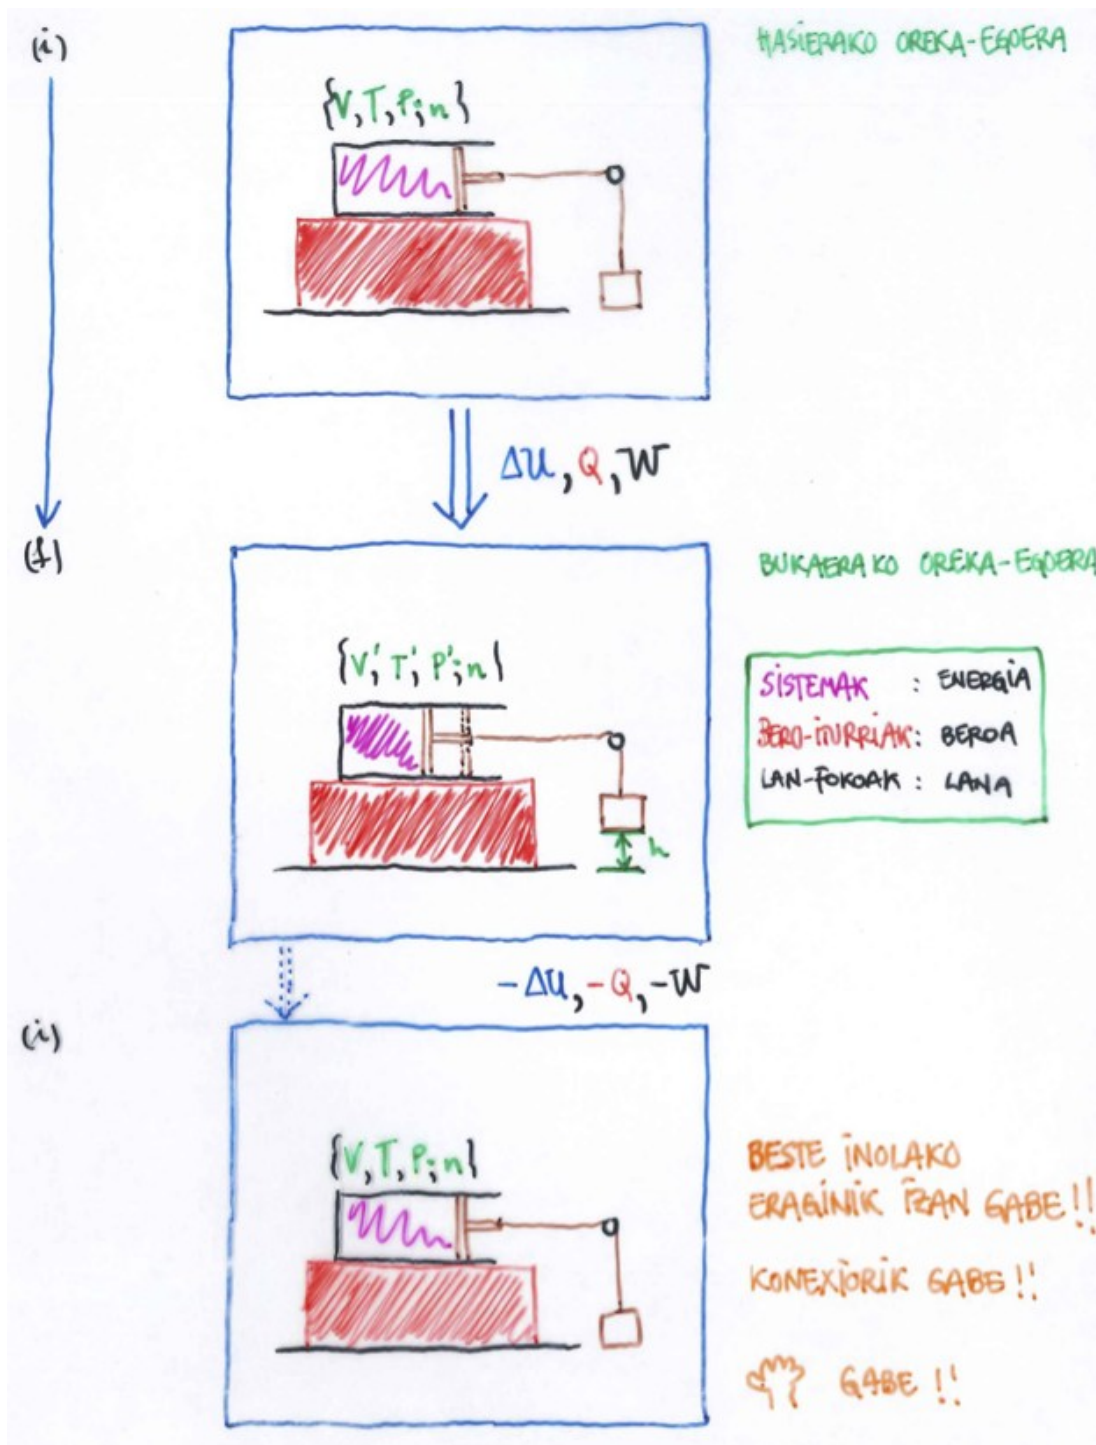 (i)
HASIERAKO OREKA-EGOERA
{V, T, P; n}
ΔU, Q, W
(f)
BUKAERAKO OREKA-EGOERA
{V', T', P'; n}
SISTEMAK : ENERGIA
BERO-ITURRIAK : BEROA
LAN-FOKOAK : LANA
h
-ΔU, -Q, -W
(i)
{V, T, P; n}
BESTE INOLAKO
ERAGINIK IZAN GABE !!
KONEXIORIK GABE !!
GABE !!